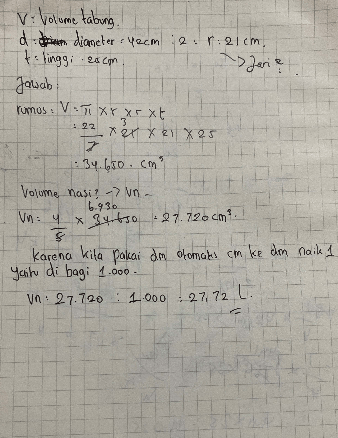 V = Volume tabung.
d = diameter = 42cm : 2 = r = 21cm.
t = tinggi = 25cm. → Jari²
Jawab :
rumus : V = π x r x r x t
= 22/7 x 21 3 x 21 x 25
= 34.650 . cm³
Volume nasi? → Vn -
6.930
Vn = 4/5 x 34.650 = 27.720 cm³.
Karena kita pakai dm otomatis cm ke dm naik 1
yaitu di bagi 1.000.
Vn = 27.720 : 1.000 = 27,72 L.